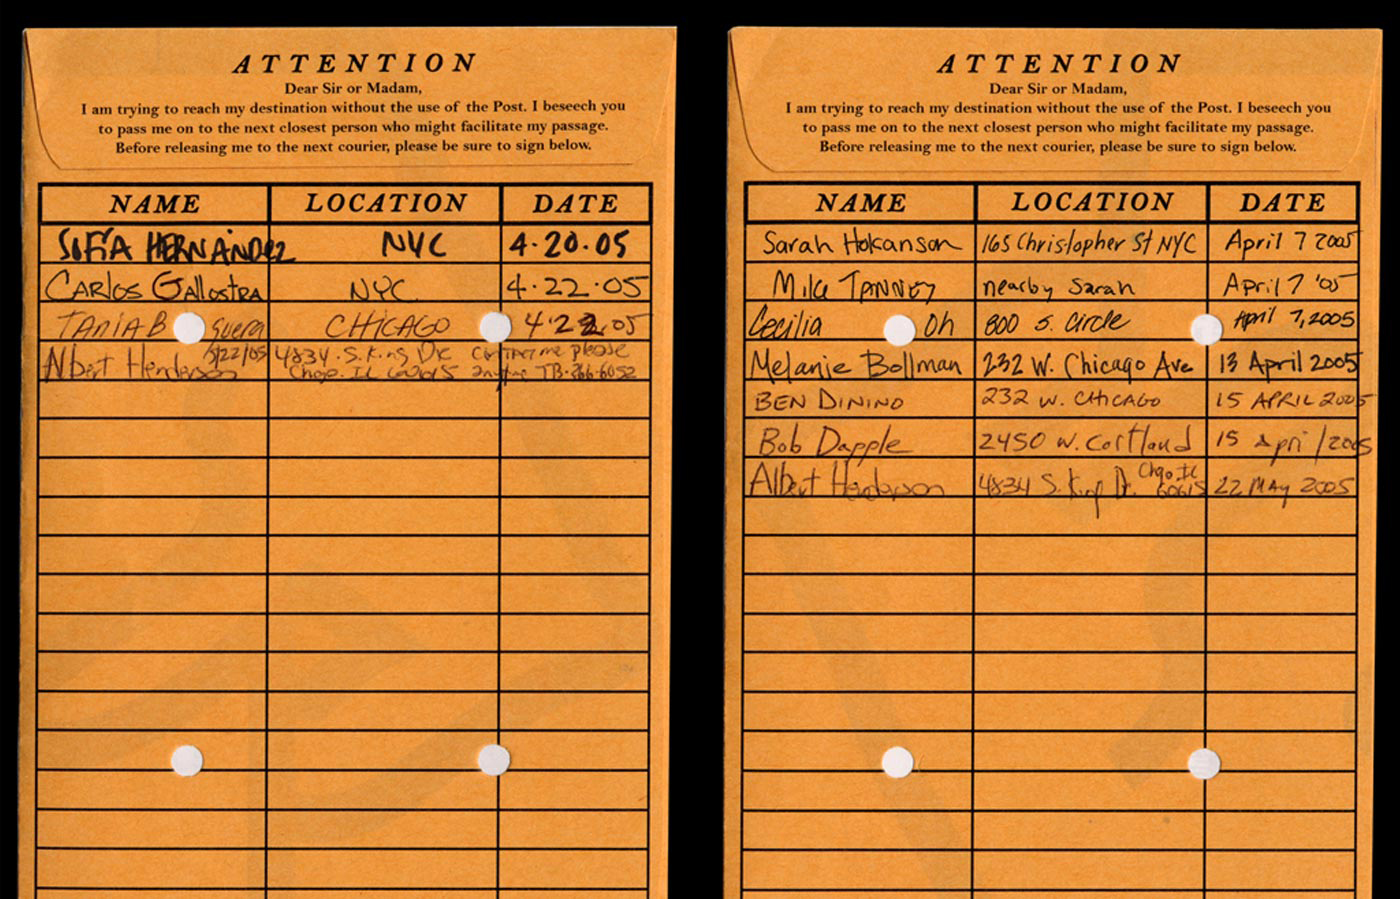 ATTENTION
Dear Sir or Madam,
I am trying to reach my destination without the use of the Post. I beseech you
to pass me on to the next closest person who might facilitate my passage.
Before releasing me to the next courier, please be sure to sign below.
NAME LOCATION DATE
SOFÍA HERNÁNDEZ NYC 4·20·05
CARLOS GALLOSTRA NYC 4·22·05
TANIA B guera CHICAGO 4'22.05
Albert Henderson 5/22/05 4834 S. King Dr. Contact me please
Chgo. IL 60615
ATTENTION
Dear Sir or Madam,
I am trying to reach my destination without the use of the Post. I beseech you
to pass me on to the next closest person who might facilitate my passage.
Before releasing me to the next courier, please be sure to sign below.
NAME LOCATION DATE
Sarah Hokanson 165 Christopher St NYC April 7 2005
TANNEY nearby Sarah April 7 '05
Cecilia Oh 800 S. Circle April 7, 2005
Melanie Bollman 232 W. Chicago Ave 13 April 2005
BEN DININO 232 W. CHICAGO 15 APRIL 2005
Bob Dapple 2450 W. Cortland 15 April 2005
Albert Henderson 4834 S. King Dr. Chgo. IL 60615 22 MAY 2005